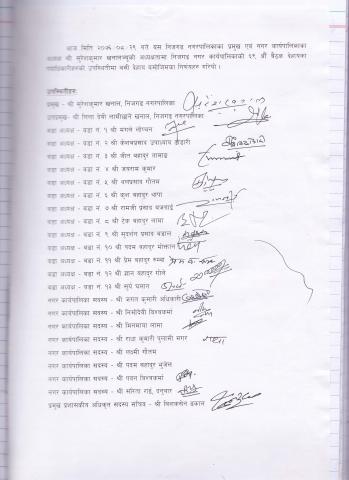 आज मिति २०७६-०८-२९ गते यस निजगढ नगरपालिकाका प्रमुख एवं नगर कार्यपालिकाका
अध्यक्ष श्री सुरेशकुमार खनालज्यूको अध्यक्षतामा निजगढ नगर कार्यपालिकाको ६९ औं बैठक देहायका
पदाधिकारीहरुको उपस्थितीमा बसी देहाय बमोजिमका निर्णयहरु गरियो ।
उपस्थितीहरुः
प्रमुख - श्री सुरेशकुमार खनाल, निजगढ नगरपालिका
उपप्रमुख- श्री गिता देवी लामीछाने खनाल, निजगढ नगरपालिका
वडा अध्यक्ष - वडा नं. १ श्री मंगले लोप्चन
वडा अध्यक्ष - वडा नं. २ श्री केशवप्रसाद उपाध्याय
वडा अध्यक्ष - वडा नं. ३ श्री जीत बहादुर लामाङ
वडा अध्यक्ष - वडा नं. ४ श्री जयराम कुमार
वडा अध्यक्ष - वडा नं. ५ श्री गौतम
वडा अध्यक्ष - वडा नं. ६ श्री कुल बहादुर थापा
वडा अध्यक्ष - वडा नं. ७ श्री रामजी प्रसाद बजगाई
वडा अध्यक्ष - वडा नं. ८ श्री टेक बहादुर लामा
वडा अध्यक्ष - वडा नं. ९ श्री सुदर्शन प्रसाद बडाल
वडा अध्यक्ष - वडा नं. १० श्री पदम बहादुर मोक्तान
वडा अध्यक्ष - वडा नं. ११ श्री प्रेम बहादुर रुम्बा
वडा अध्यक्ष - वडा नं. १२ श्री ज्ञान बहादुर गोले
वडा अध्यक्ष - वडा नं. १३ श्री सुर्य घमान
नगर कार्यपालिका सदस्य - श्री जगत कुमारी अधिकारी
नगर कार्यपालिका सदस्य - श्री निर्मादेवी विश्वकर्मा
नगर कार्यपालिका सदस्य - श्री मिनमाया लामा
नगर कार्यपालिका सदस्य - श्री राधा कुमारी पुलामी मगर
नगर कार्यपालिका सदस्य - श्री लक्ष्मी गौतम
नगर कार्यपालिका सदस्य - श्री पदम बहादुर भुजेल
नगर कार्यपालिका सदस्य - श्री पवन विश्वकर्मा
नगर कार्यपालिका सदस्य - श्री सरिता राई, दनुवार
प्रमुख प्रशासकीय अधिकृत सदस्य सचिव - श्री तिलकसेन ढकाल